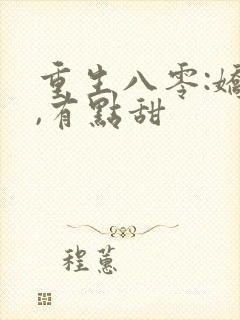 重生八零:嬌
,有點甜
程蕙